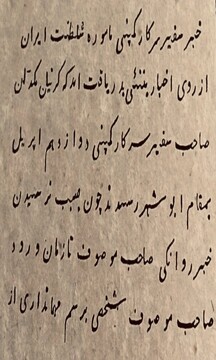 خبر سفیر سرکار کمپنی ماموره سلطنت ایران
از روی اخبار بنبئی دریافت امد که کرنیل مکدانل
صاحب سفیر سرکار کمپنی دوازدهم اپریل
بمقام ابو شهر رسیدند چون بسبب نرسیدن
خبر روانکی صاحب موصوف تا زمان ورود
صاحب موصوف شخصی برسم مهمانداری از